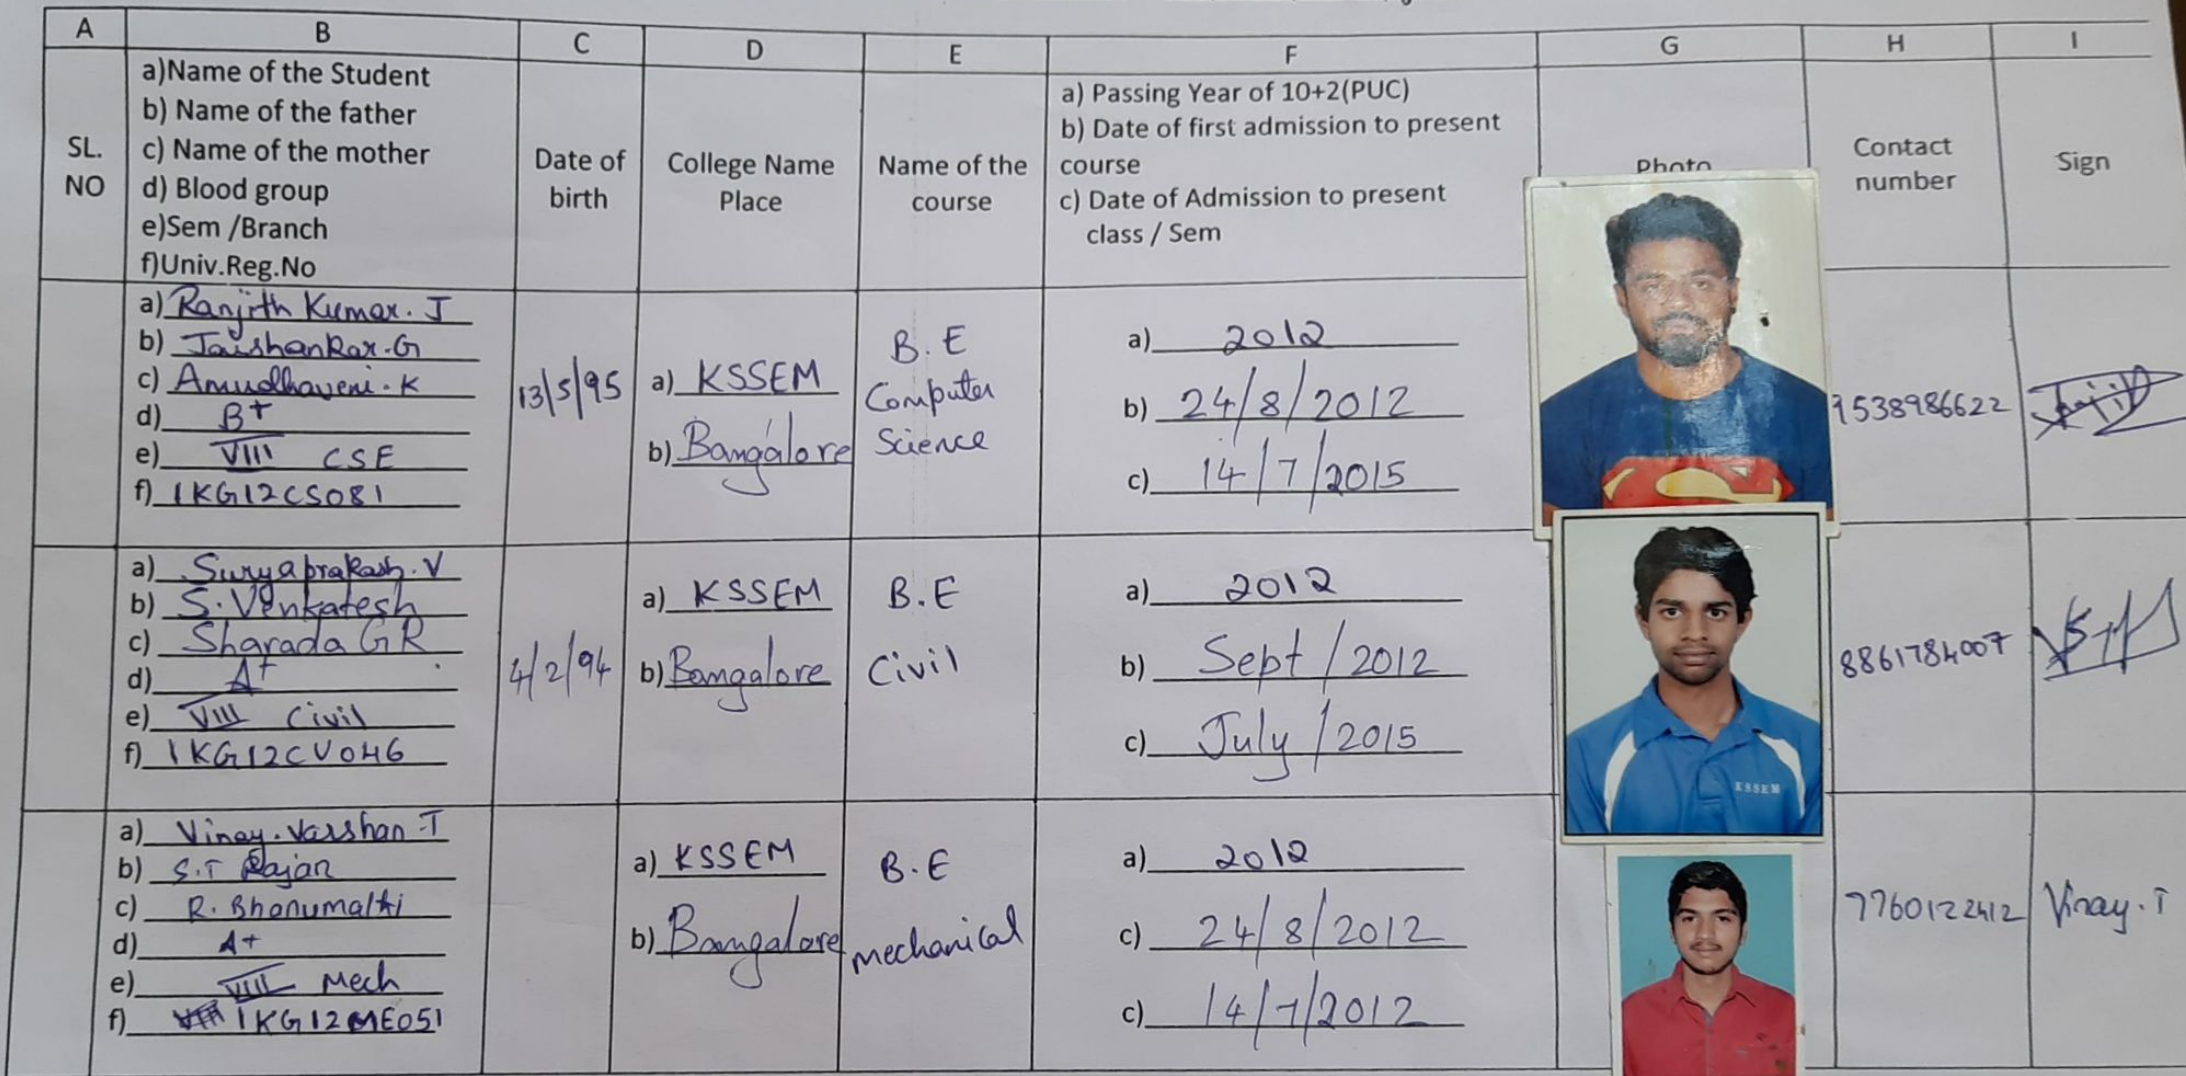 A B C D E F G H I
SL. NO
a)Name of the Student
b) Name of the father
c) Name of the mother
d) Blood group
e)Sem /Branch
f)Univ.Reg.No
Date of birth
College Name
Place
Name of the course
a) Passing Year of 10+2(PUC)
b) Date of first admission to present
course
c) Date of Admission to present
class / Sem
Photo
Contact number
Sign
a) Ranjith Kumar. J
b) Jaishankar.G
c) Amudhaveni.K
d) B+
e) VIII CSE
f) 1KG12CS081
13/5/95
a) KSSEM
b) Bangalore
B.E
Computer
Science
a) 2012
b) 24/8/2012
c) 14/7/2015
9538986622
a) Suryaprakash.V
b) S.Venkatesh
c) Sharada GR
d) A+
e) VIII Civil
f) 1KG12CV046
4/2/94
a) KSSEM
b) Bangalore
B.E
Civil
a) 2012
b) Sept/2012
c) July/2015
KSSEM
8861784007
a) Vinay.Varshan.T
b) S.T Rajan
c) R. Bhanumathi
d) A+
e) VIII Mech
f) 1KG12ME051
a) KSSEM
b) Bangalore
B.E
mechanical
a) 2012
c) 24/8/2012
c) 14/7/2012
7760122412
Vinay.T